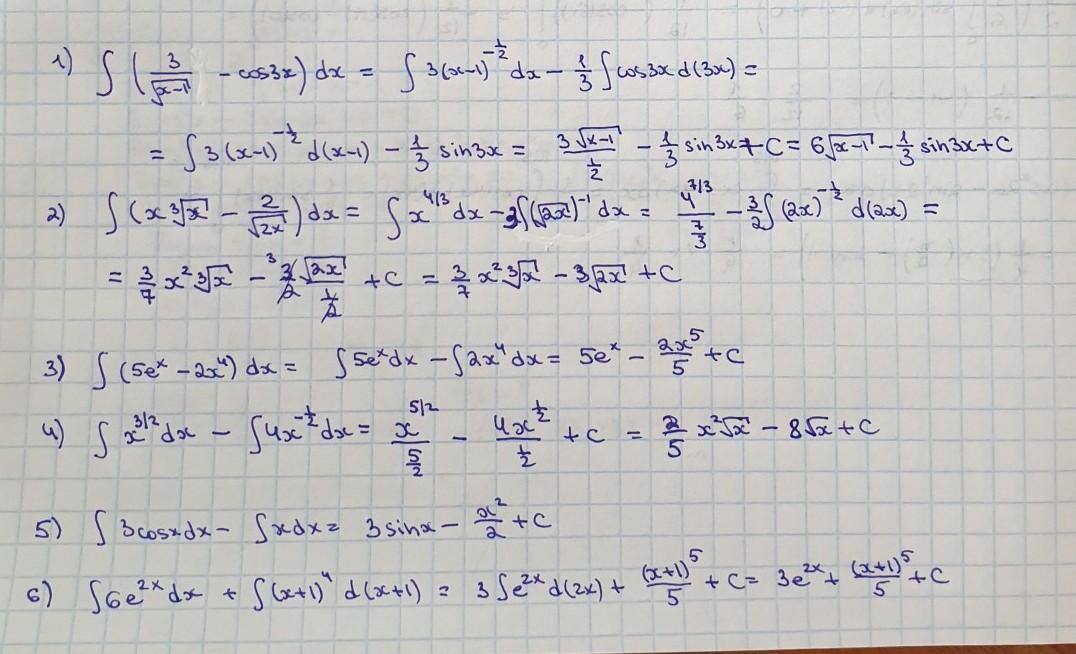 1) ∫ (3/√(x-1) - cos3x) dx = ∫ 3(x-1)^(-1/2) dx - 1/3 ∫ cos3x d(3x) =
= ∫ 3(x-1)^(-1/2) d(x-1) - 1/3 sin3x = 3√(x-1)/(1/2) - 1/3 sin3x + C = 6√(x-1) - 1/3 sin3x + C
2) ∫ (x ∛x - 2/√(2x)) dx = ∫ x^(4/3) dx - 3∫(√(2x))^(-1) dx = 4^(7/3)/(7/3) - 3/2 ∫ (2x)^(-1/2) d(2x) =
= 3/7 x² ∛x - 3 √(2x)/(1/2) + C = 3/7 x² ∛x - 3√(2x) + C
3) ∫ (5e^x - 2x⁴) dx = ∫ 5e^x dx - ∫ 2x⁴ dx = 5e^x - 2x⁵/5 + C
4) ∫ x^(3/2) dx - ∫ 4x^(-1/2) dx = x^(5/2)/(5/2) - 4x^(1/2)/(1/2) + C = 2/5 x² √x - 8√x + C
5) ∫ 3cosx dx - ∫ x dx = 3 sinx - x²/2 + C
6) ∫ 6e^(2x) dx + ∫ (x+1)⁴ d(x+1) = 3 ∫ e^(2x) d(2x) + (x+1)⁵/5 + C = 3e^(2x) + (x+1)⁵/5 + C